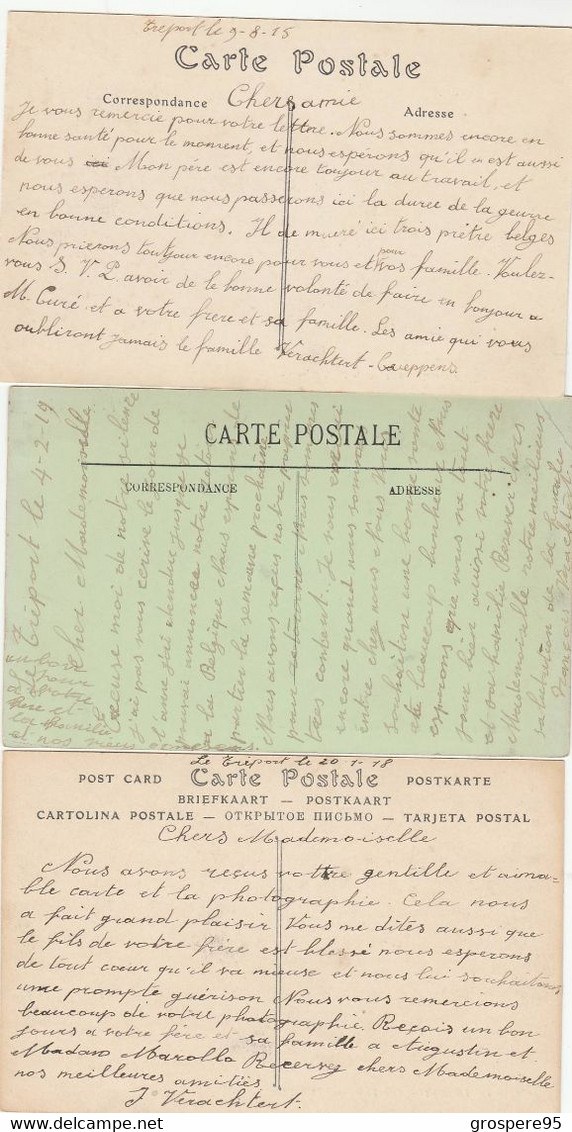 Tréport le 9-8-15
Carte Postale
Correspondance
Adresse
Chers amie
Je vous remercie pour votre lettre. Nous sommes encore en
bonne santé pour le moment, et nous espérons qu'il en est aussi
de vous Mon pére est encore toujour au travail, et
nous esperons que nous passerons ici la durée de la geurre
en bonne conditions. Il de mueré ici trois prêtre belges
Nous prierons toutjour encore pour vous et pour vos famille. Voulez-
vous S. V. P. avoir de le bonne volonté de faire en bonjour a
M. Curé et a votre frere et sa famille. Les amie qui vous
oubliront jamais le famille Verachtert-Cueppens.
Le Tréport le 4-2-19
Cher Mademoiselle
Excuse moi de notre silence
j'ai pas vous ecrive le jour de
l'anne j'ai atendue jusqu'a je
pouvai annoncer notre retour
a la Belgique Nous esperons de
partir la semaine prochaine
Nous avons reçus notre
pour Nous sommes
tres content. Je vous
encore quand nous sommes
entre chez nous Nous vous
souhaition une bonne sante
et beaucoup bonheur Nous
esperons que vous ne tout
pour bien aussi votre frere
et sa famille Recever chers
Mademoiselle notre meilleures
salutation de la famille
un bon
jour
a votre
frere et
la famille
et nos vieux
CARTE POSTALE
CORRESPONDANCE
ADRESSE
Le Tréport le 20-1-18
POST CARD Carte Postale POSTKARTE
BRIEFKAART — POSTKAART
CARTOLINA POSTALE — ОТКРЫТОЕ ПИСЬМО — TARJETA POSTAL
Chers Mademoiselle
Nous avons reçus vottre gentille et aima-
ble carte et la photographie. Cela nous
a fait grand plaisir Vous me dites aussi que
le fils de votre frére est blessé nous esperons
de tout coeur qu'il va mieuse et nous lui souhaitons
une prompte guérison Nous vous remercions
beaucoup de votre photographie. Reçois un bon
jours a votre fére et sa famille a Augustin et
Madam Marolla Recevez chers Mademoiselle
nos meilleures amitiés
J Verachtert.
© grospere95